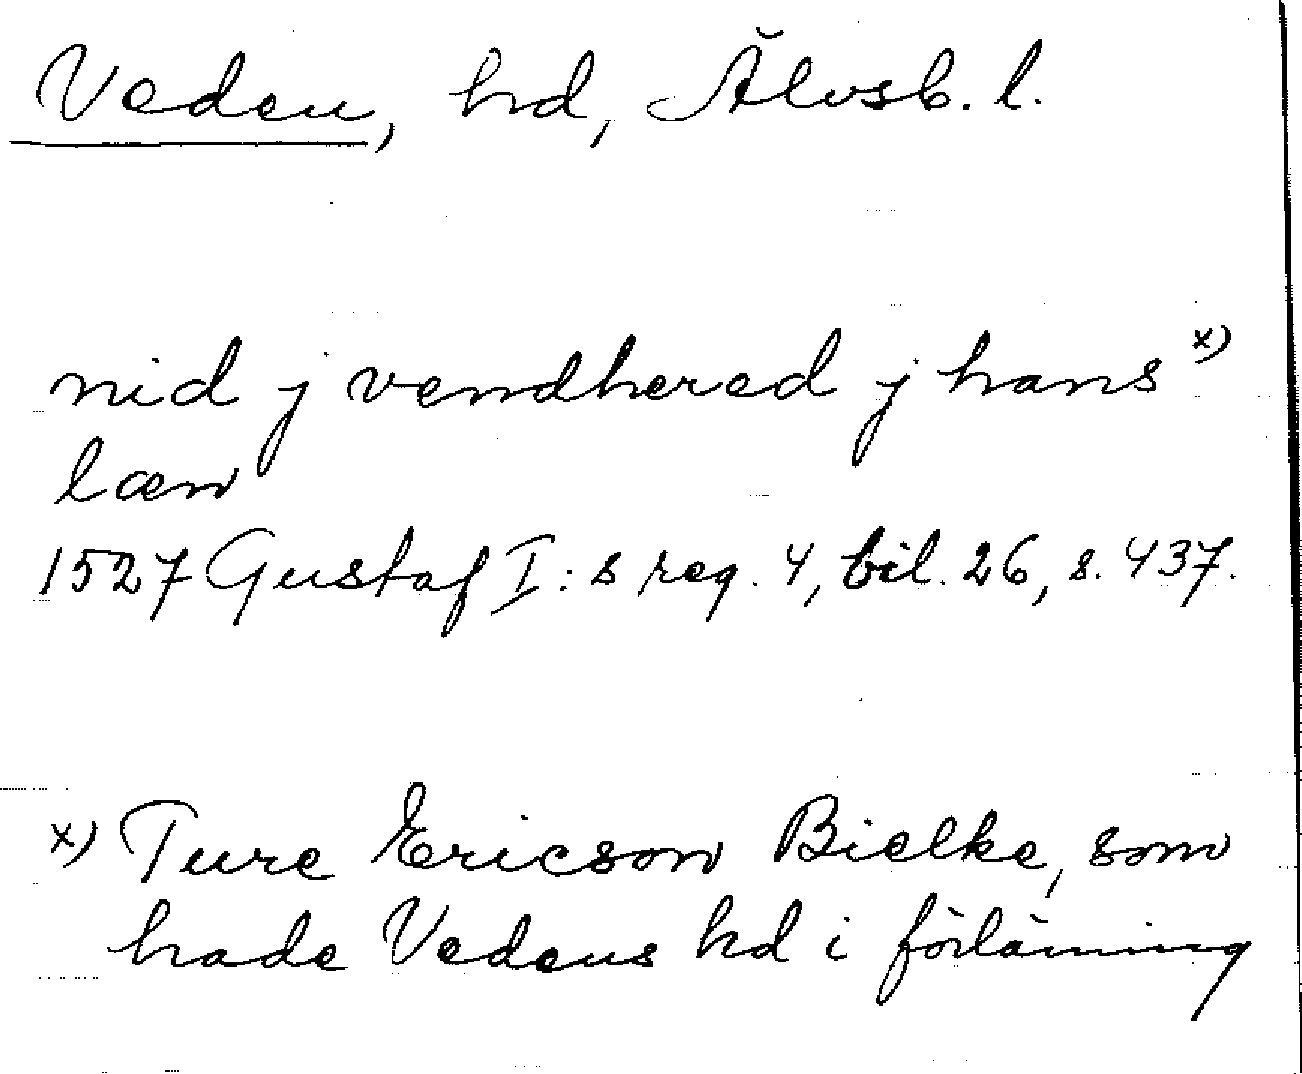 Veden, hd, Älvsb. l.
nid j vendhered j hans x)
læn
1527 Gustaf I:s reg. 4, bil. 26, s. 437.
x) Ture Ericson Bielke, som
hade Vedens hd i förläning